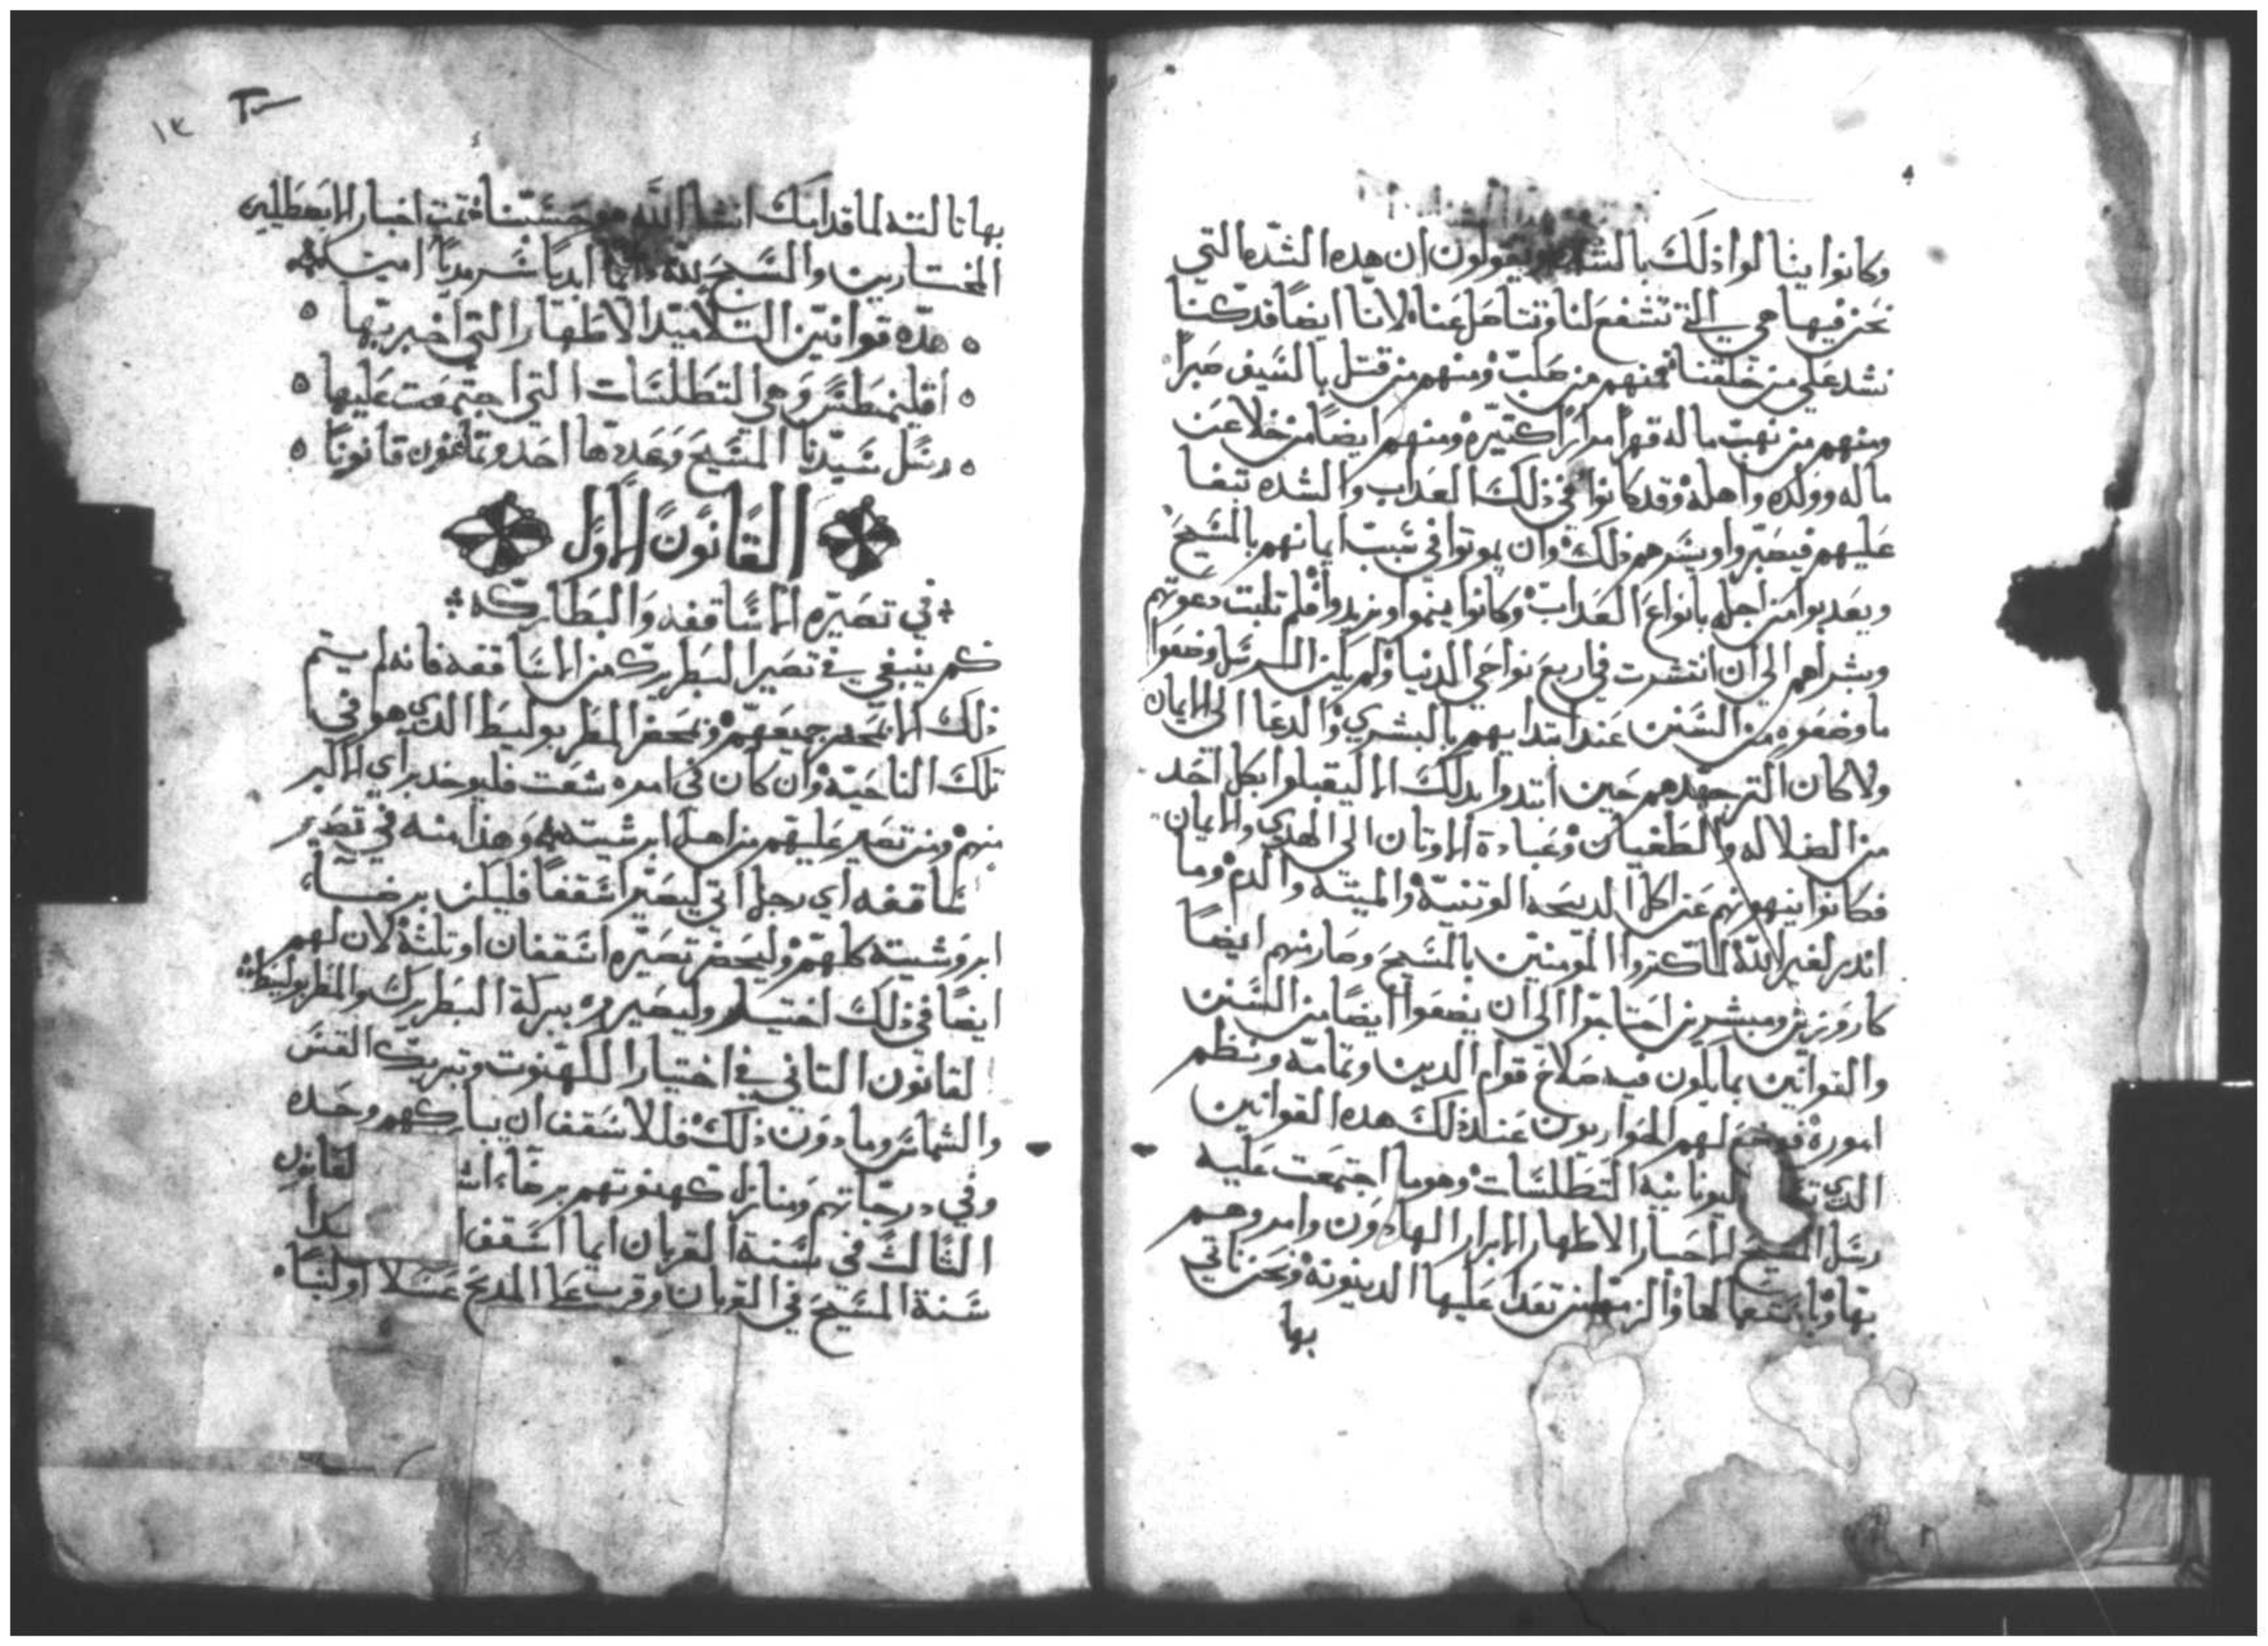 وكانوا ينالوا ذلك بالشده ويقولون ان هده الشده التي
نحن فيها هي التي تشفع لنا وتتاهل عنا لاننا ايضًا قد كنا
نشد علي من خلفنا فمنهم من صلب ومنهم من قتل بالسيف صبرًا
ومنهم من نهب ماله قهرا مرارًا كتيره ومنهم ايضًا من خلا عن
ماله وولده واهله وقد كانوا في ذلك العداب والشده تبغا
عليهم فيصبروا ويسرهم ذلك وان يموتوا في سبب ايمانهم بالمسيح
ويعدبوا من اجله بانواع العداب وكانوا ينموا ويزيدوا فلم تلبت دعوتهم
وبشراهم الي ان انتشرت في اربع نواحي الدنيا ولم يكن الرسل وضعوا
ما وضعوه من السنن عند ابتدايهم بالبشري والدعا الي الايمان
ولا كان اكتر جهدهم حين ابتدوا بدلك الا ليقبلوا بكل احد
من الضلاله والطغيان وعبادة الاوتان الي الهدي والايمان
فكانوا ينهونهم عن اكل الدبيحه الوتنيه والميته والدم وما
اندر لغير الله لما كتروا المومنين بالمسيح وصار منهم ايضًا
كاروزين ومبشرين احتاجوا الي ان يضعوا ايضًا من السنن
والقوانين بما يكون فيه صلاح قوام الدين وتمامه ونظم
اموره فوضع لهم الحواريون عند ذلك هده القوانين
الدي اليونانيه التطلسات وهو ما اجتمعت عليه
رسل المسيح الاحبار الاطهار الابرار الهادون وامروهم
بها وباتباعها لها والزموا من تعدا عليها الدينونة ونحن ناتي
بها
بها تالته لما قدامك انشا الله حسبنا تمت اخبار الابسطليين
المختارين والسبح لله دايمًا ابديًا سرمديًا امين
هده قوانين التلاميد الاطهار التي اخبر بها
اقليمطس وهي التطلسات التي اجتمعت عليها
رسل سيدنا المسيح وعدتها احد وتمانون قانونًا
القانون الاول
في تصيره الاساقفه والبطاركه
كم ينبغي في تصير البطريرك من الاساقفه فانه لم يتم
ذلك الا بمحضر جميعهم ويحضر المطربوليط الدي هو في
تلك الناحيه وان كان في امره شغت فليوخد براي الاكبر
منهم ومن تصير عليهم من اهل ابرشيته وهذا منه في تصير
اساقفه اي رجل اتي ليصير اسقفًا فليكن برضا
ابروشيته كلهم وليحضر تصيره اسقفان او تلته لان لهم
ايضًا في ذلك اختيار وليصيروه ببركة البطريرك والمطربوليط
القانون التاني في اختيار الكهنوت وتبريك القس
والشماس وما دون ذلك فللاسقف ان يباركهم وحده
وفي درجاتهم ومنازل كهنوتهم برضا القانون
التالت في سنة القربان ايما اسقف
سنة المسيح في القربان وقرب علي المدبح عسلا او لبنًا